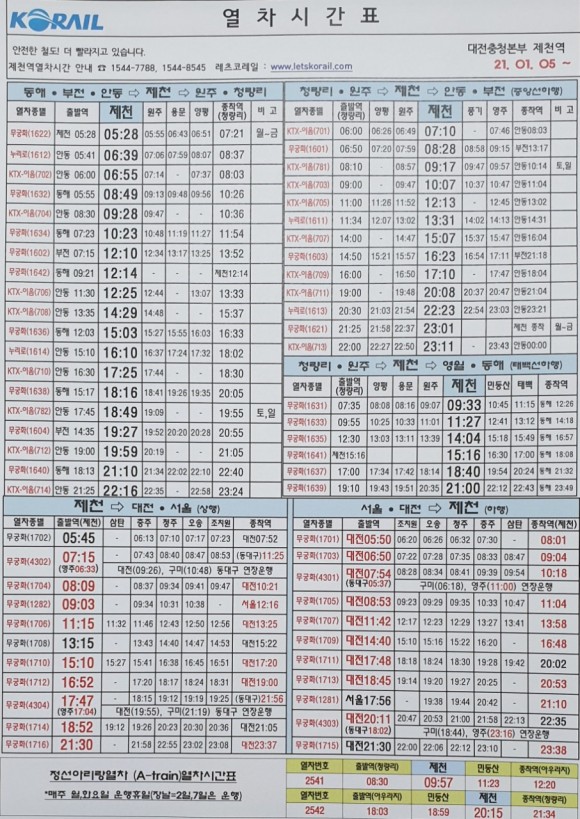 KORAIL
열차시간표
안전한 철도! 더 빨라지고 있습니다.
제천역열차시간 안내 ☎ 1544-7788, 1544-8545 레츠코레일 : www.letskorail.com
대전충청본부 제천역
21. 01. 05 ~
동해 • 부전 • 안동 ⇨ 제천 ⇨ 원주 • 청량리
열차종별 출발역 제천 원주 용문 양평 종착역(청량리) 비고
무궁화(1622) 제천 05:28 05:28 05:55 06:43 06:51 07:21 월~금
누리로(1612) 안동 05:41 06:39 07:06 07:59 08:07 08:37
KTX-이음(702) 안동 06:00 06:55 07:14 - 07:37 08:03
무궁화(1632) 동해 05:55 08:49 09:13 09:48 09:56 10:26
KTX-이음(704) 안동 08:30 09:28 09:47 - - 10:36
무궁화(1634) 동해 07:23 10:23 10:48 11:19 11:27 11:54
무궁화(1602) 부전 07:15 12:10 12:34 13:17 13:25 13:52
무궁화(1642) 동해 09:21 12:14 - - - 제천12:14
KTX-이음(706) 안동 11:30 12:25 12:44 - 13:07 13:33
KTX-이음(708) 안동 13:35 14:29 14:48 - - 15:37
무궁화(1636) 동해 12:03 15:03 15:27 15:55 16:03 16:33
누리로(1614) 안동 15:10 16:10 16:37 17:24 17:32 18:02
KTX-이음(710) 안동 16:30 17:25 17:44 - - 18:30
무궁화(1638) 동해 15:17 18:16 18:41 19:26 19:35 20:05
KTX-이음(782) 안동 17:45 18:49 19:09 - - 19:55 토,일
무궁화(1604) 부전 14:35 19:27 19:52 20:20 20:28 20:55
KTX-이음(712) 안동 19:00 19:59 20:19 - - 21:05
무궁화(1640) 동해 18:13 21:10 21:34 22:02 22:10 22:40
KTX-이음(714) 안동 21:25 22:16 22:35 - 22:58 23:24
청량리 • 원주 ⇨ 제천 ⇨ 안동 • 부전 (중앙선하행)
열차종별 출발역(청량리) 양평 원주 제천 풍기 영주 종착역 비고
KTX-이음(701) 06:00 06:26 06:49 07:10 - 07:46 안동08:03
무궁화(1601) 06:50 07:20 07:59 08:28 08:58 09:15 부전13:17
KTX-이음(781) 08:10 - 08:57 09:17 09:47 09:57 안동10:14 토,일
KTX-이음(703) 09:00 - 09:47 10:07 10:37 10:47 안동11:04
KTX-이음(705) 11:00 11:28 11:52 12:13 - 12:45 안동13:02
누리로(1611) 11:34 12:07 13:02 13:31 14:02 14:13 안동14:31
KTX-이음(707) 14:00 - 14:47 15:07 15:37 15:47 안동16:04
무궁화(1603) 14:50 15:21 15:57 16:23 16:54 17:11 부전21:18
KTX-이음(709) 16:00 - 16:50 17:10 - 17:47 안동18:04
KTX-이음(711) 19:00 - 19:48 20:08 20:37 20:47 안동21:04
누리로(1613) 20:30 21:03 21:54 22:23 22:54 23:03 안동23:21
무궁화(1621) 21:25 21:58 22:37 23:01 제천 종착 월~금
KTX-이음(713) 22:00 22:27 22:50 23:11 - 23:43 안동00:00
청량리 • 원주 ⇨ 제천 ⇨ 영월 • 동해 (태백선하행)
열차종별 출발역(청량리) 양평 용문 원주 제천 민둥산 태백 종착역
무궁화(1631) 07:35 08:08 08:16 09:07 09:33 10:45 11:15 동해 12:26
무궁화(1633) 09:55 10:25 10:33 11:01 11:27 12:41 13:12 동해 14:18
무궁화(1635) 12:30 13:03 13:11 13:39 14:04 15:18 15:49 동해 16:57
무궁화(1641) 제천15:16 15:16 16:30 17:00 동해 18:08
무궁화(1637) 17:00 17:34 17:42 18:14 18:40 19:54 20:24 동해 21:32
무궁화(1639) 19:10 19:43 19:51 20:35 21:00 22:12 22:43 동해 23:49
제천 ⇨ 대전 • 서울 (상행)
열차종별 출발역(제천) 삼탄 충주 청주 오송 조치원 종착역
무궁화(1702) 05:45 - 06:13 07:10 07:17 07:23 대전07:52
무궁화(4302) 07:15 (영주06:33) - 07:43 08:40 08:47 08:53 (동대구)11:25
대전(09:26), 구미(10:48) 동대구 연장운행
무궁화(1704) 08:09 - 08:37 09:34 09:41 09:47 대전10:21
무궁화(1282) 09:03 - 09:34 10:31 10:38 - 서울12:16
무궁화(1706) 11:15 11:32 11:46 12:43 12:50 12:56 대전13:25
무궁화(1708) 13:15 - 13:43 14:40 14:47 14:53 대전15:22
무궁화(1710) 15:10 15:27 15:41 16:38 16:45 16:51 대전17:20
무궁화(1712) 16:52 - 17:20 18:17 18:24 18:31 대전19:00
무궁화(4304) 17:47 (영주17:04) - 18:15 19:12 19:19 19:25 (동대구)21:56
대전(19:55), 구미(21:19) 동대구 연장운행
무궁화(1714) 18:52 19:12 19:26 20:23 20:30 20:36 대전21:05
무궁화(1716) 21:30 - 21:58 22:55 23:02 23:08 대전23:37
서울 • 대전 ⇨ 제천 (하행)
열차종별 출발역 조치원 오송 청주 충주 삼탄 종착역(제천)
무궁화(1701) 대전05:50 06:20 06:26 06:32 07:30 - 08:01
무궁화(1703) 대전06:50 07:22 07:28 07:35 08:33 08:47 09:04
무궁화(4301) 대전07:54 (동대구05:37) 08:28 08:34 08:41 09:39 09:54 10:18
구미(06:18), 영주(11:00) 연장운행
무궁화(1705) 대전08:53 09:23 09:29 09:35 10:33 10:47 11:04
무궁화(1707) 대전11:42 12:17 12:23 12:29 13:27 13:41 13:58
무궁화(1709) 대전14:40 15:10 15:16 15:22 16:20 - 16:48
무궁화(1711) 대전17:48 18:18 18:24 18:30 19:28 19:42 20:02
무궁화(1713) 대전18:45 19:14 19:20 19:27 20:25 - 20:53
무궁화(1281) 서울17:56 - 19:38 19:44 20:42 - 21:10
무궁화(4303) 대전20:11 (동대구18:02) 20:47 20:53 21:00 21:58 22:13 22:35
구미(18:44), 영주(23:16) 연장운행
무궁화(1715) 대전21:30 22:00 22:06 22:12 23:10 - 23:38
정선아리랑열차 (A-train)열차시간표
*매주 월,화요일 운행휴일(장날=2일,7일은 운행)
열차번호 출발역(청량리) 제천 민둥산 종착역(아우라지)
2541 08:30 09:57 11:23 12:20
열차번호 출발역(아우라지) 민둥산 제천 종착역(청량리)
2542 18:03 18:59 20:15 21:34